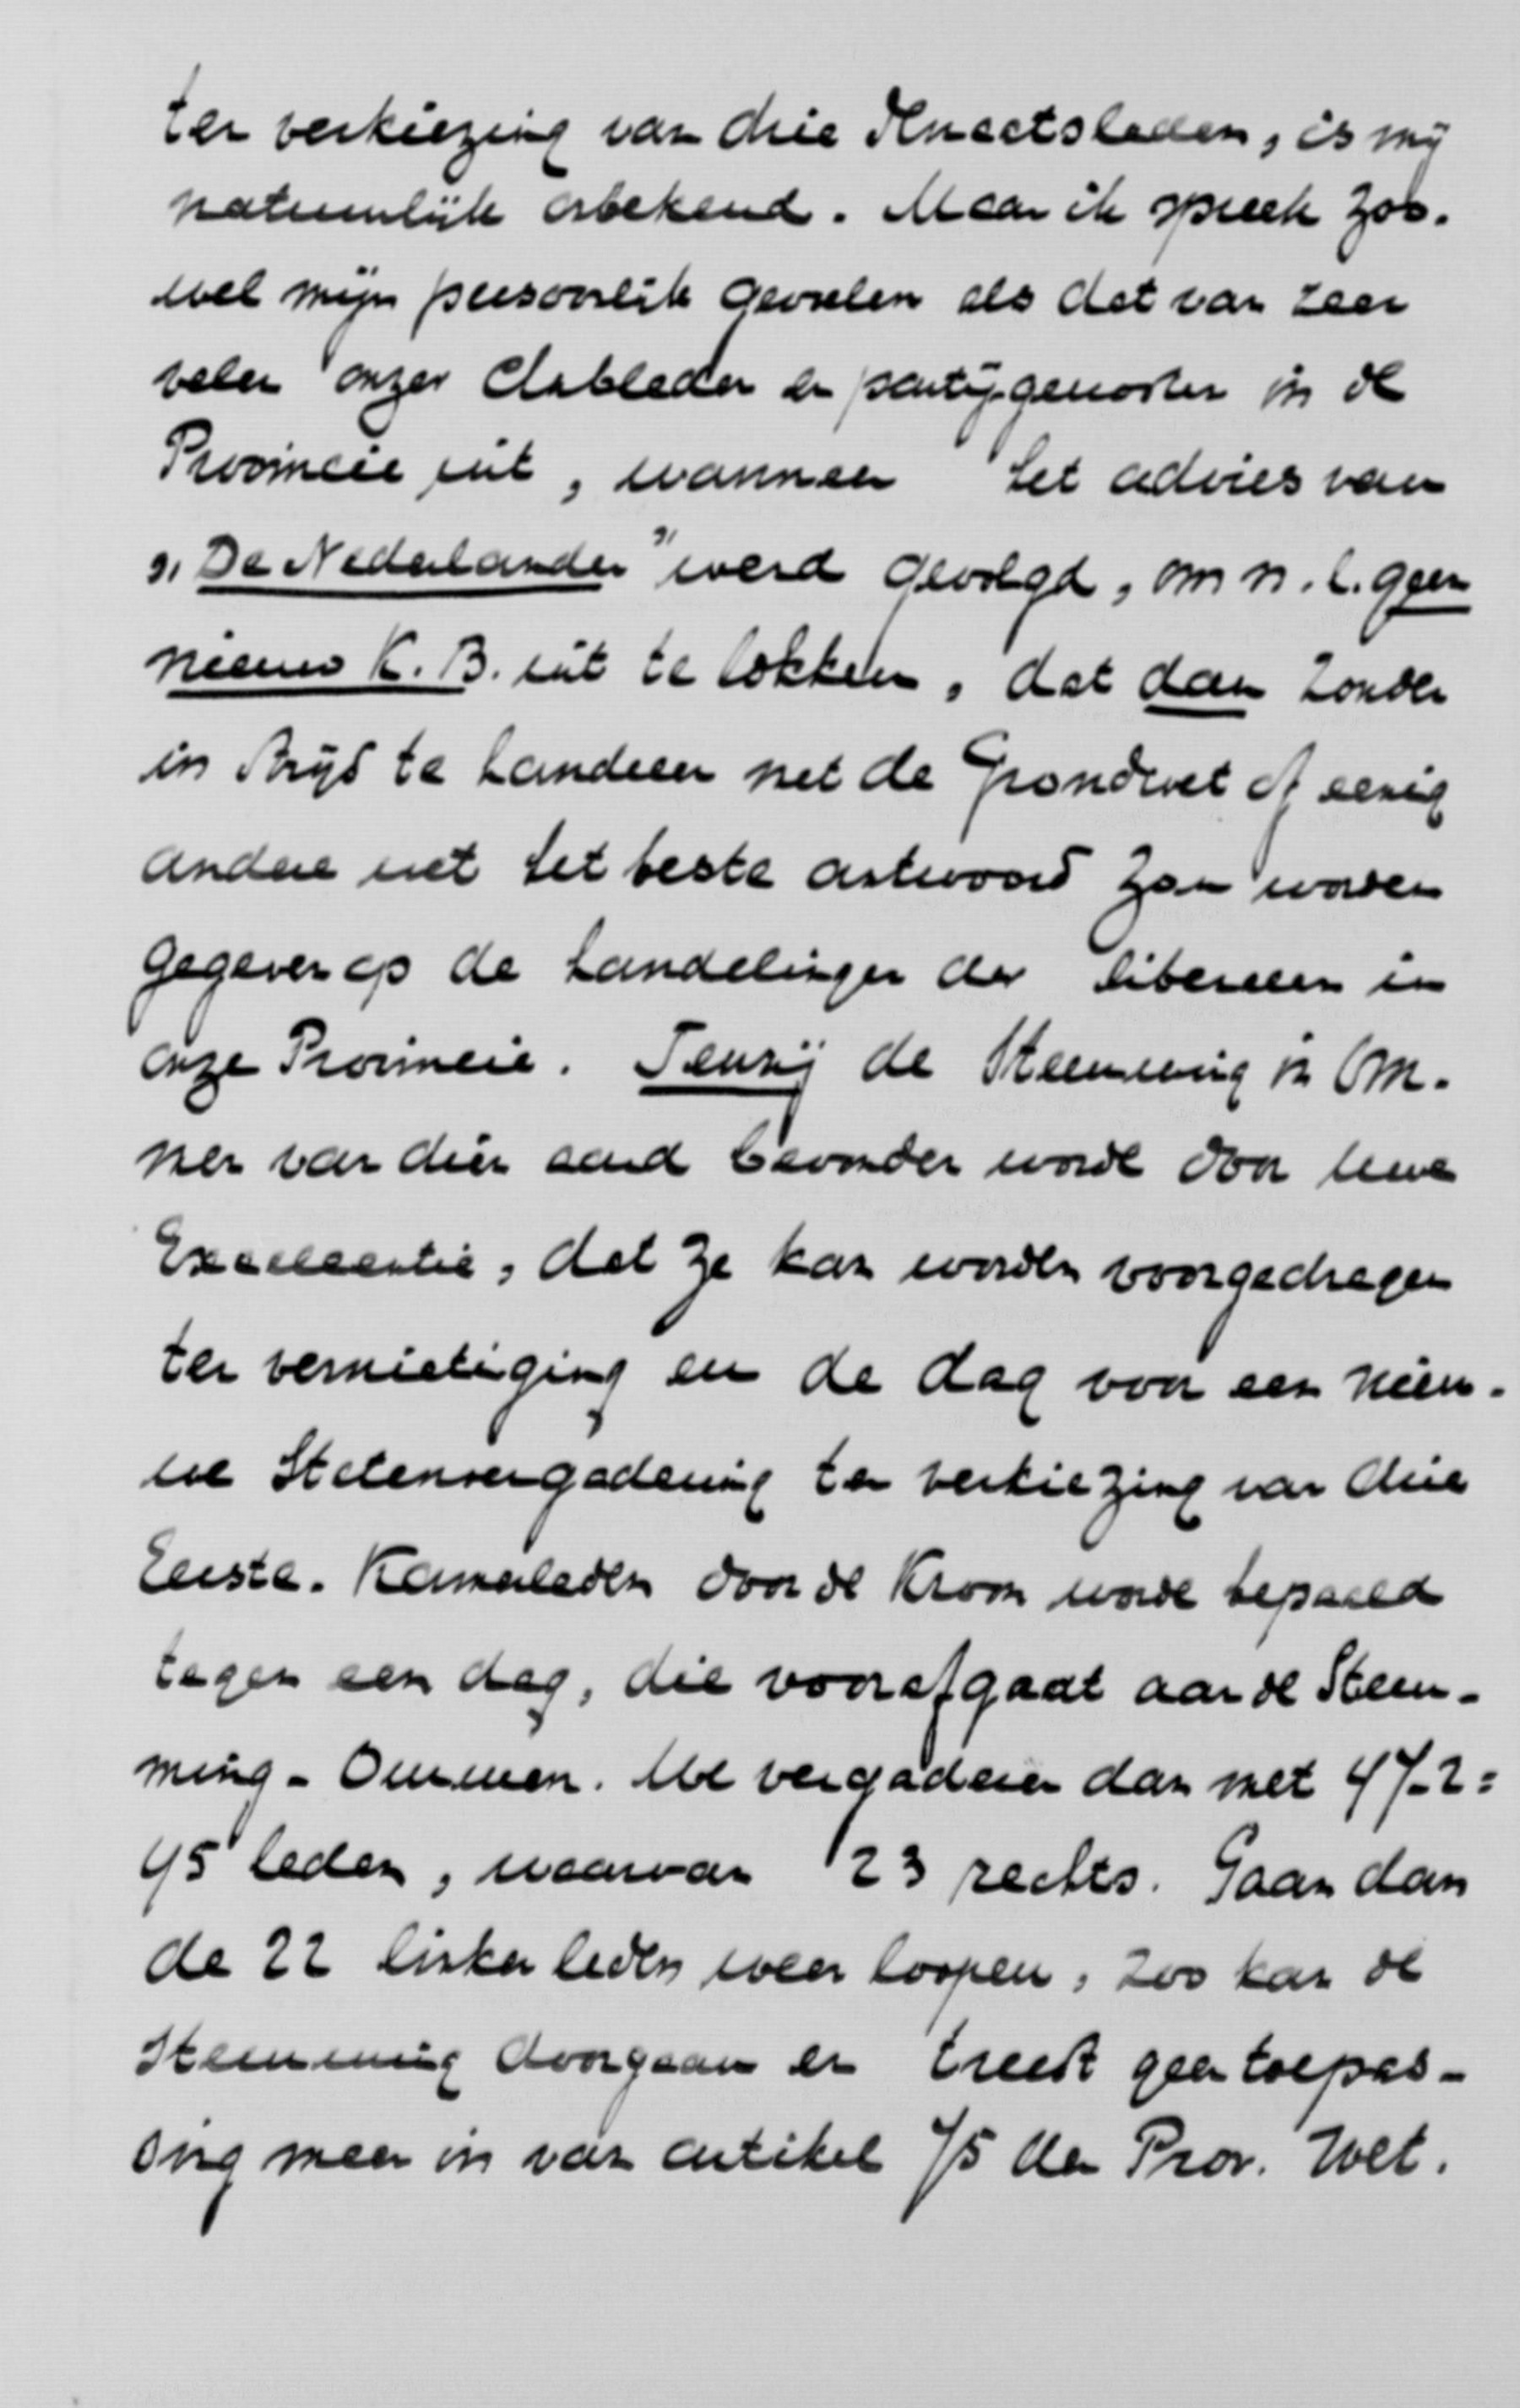 ter verkiezing van drie Senaatsleden, is mij
natuurlijk onbekend. Maar ik spreek zoo-
wel mijn persoonlijk gevoelen als dat van zeer
velen onzer Clubleden en partijgenooten in de
Provincie uit, wanneer het advies van
„De Nederlander" werd gevolgd, om n.l. geen
nieuw K.B. uit te lokken, dat dan zonder
in strijd te handelen met de Grondwet of eenig
andere wet het beste antwoord zou worden
gegeven op de handelingen der liberalen in
onze Provincie. Tenzij de Stemming in Om-
men van dien aard bevonden worde door Uwe
Excellentie, dat ze kan worden voorgedragen
ter vernietiging en de dag voor een nieu-
we Statenvergadering ter verkiezing van drie
Eerste-Kamerleden door de Kroon worde bepaald
tegen een dag, die voorafgaat aan de Stem-
ming-Ommen. We vergaderen dan met 47-2=
45 leden, waarvan 23 rechts. Gaan dan
de 22 linker leden weer loopen, zoo kan de
Stemming doorgaan en treedt geen toepas-
sing meer in van artikel 75 der Prov. Wet.